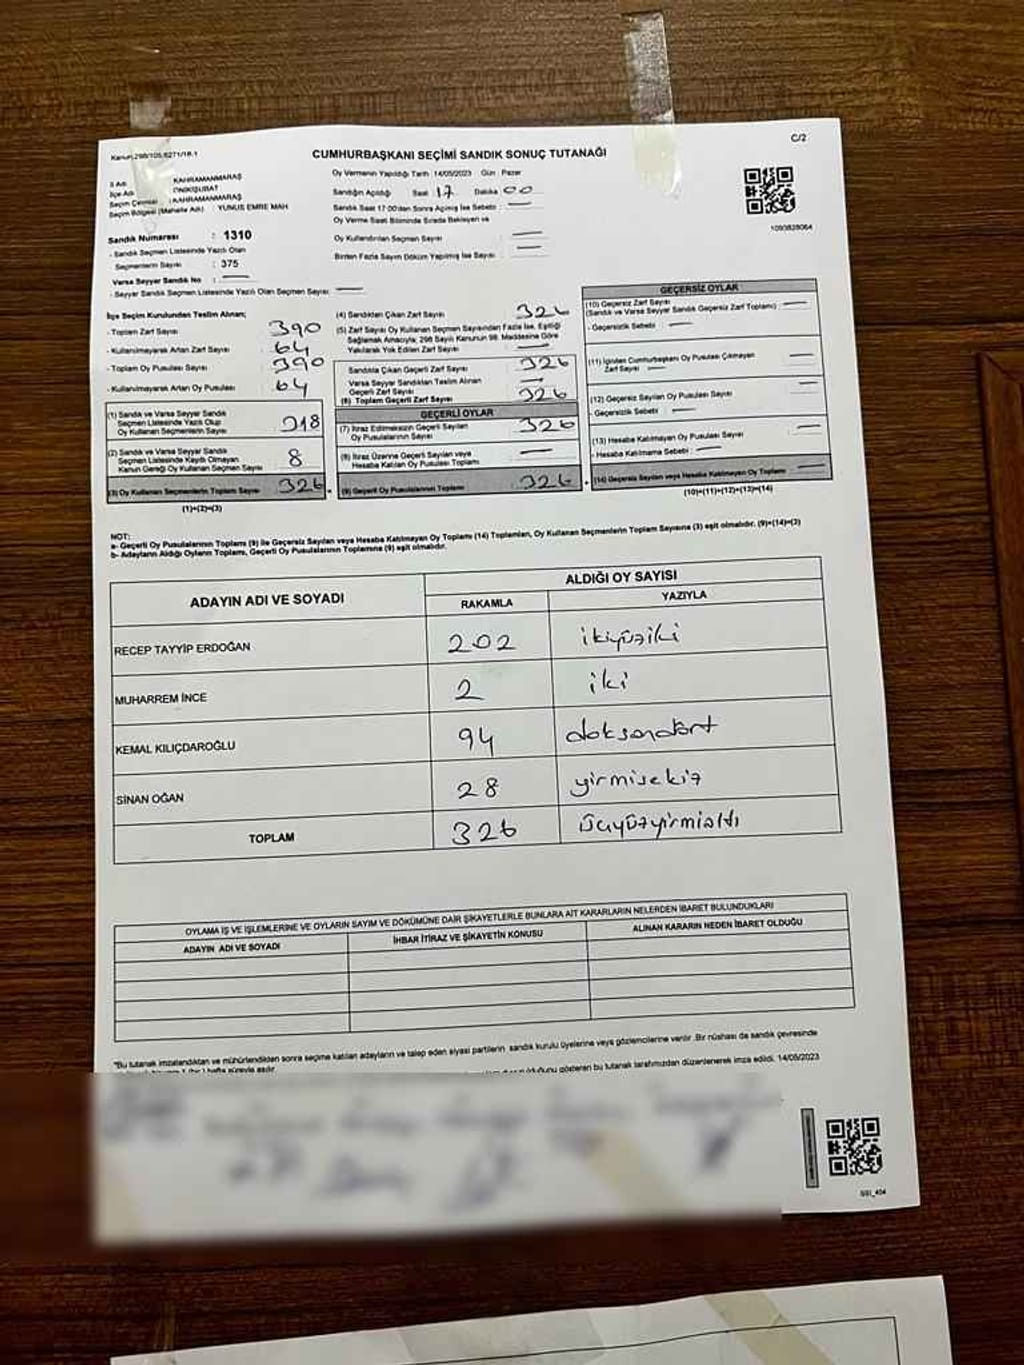 C/2
Kanun 298/105,6271/18.1
CUMHURBAŞKANI SEÇİMİ SANDIK SONUÇ TUTANAĞI
İl Adı : KAHRAMANMARAŞ
İlçe Adı : ONİKİŞUBAT
Seçim Çevresi : KAHRAMANMARAŞ
Seçim Bölgesi (Mahalle Adı) : YUNUS EMRE MAH
Sandık Numarası : 1310
- Sandık Seçmen Listesinde Yazılı Olan
Seçmenlerin Sayısı : 375
Varsa Seyyar Sandık No :
- Seyyar Sandık Seçmen Listesinde Yazılı Olan Seçmen Sayısı :
Oy Vermenin Yapıldığı Tarih 14/05/2023 Gün Pazar
Sandığın Açıldığı Saat 17 Dakika 00
Sandık Saat 17:00'den Sonra Açılmış İse Sebebi :
Oy Verme Saati Bitiminde Sırada Bekleyen ve
Oy Kullandırılan Seçmen Sayısı
Birden Fazla Sayım Döküm Yapılmış İse Sayısı
1093828064
İlçe Seçim Kurulundan Teslim Alınan;
- Toplam Zarf Sayısı 390
- Kullanılmayarak Artan Zarf Sayısı 64
- Toplam Oy Pusulası Sayısı 390
- Kullanılmayarak Artan Oy Pusulası 64
(1) Sandık ve Varsa Seyyar Sandık
Seçmen Listesinde Yazılı Olup
Oy Kullanan Seçmenlerin Sayısı 318
(2) Sandık ve Varsa Seyyar Sandık
Seçmen Listesinde Kaydı Olmayan
Kanun Gereği Oy Kullanan Seçmen Sayısı 8
(3) Oy Kullanan Seçmenlerin Toplam Sayısı 326
(1)+(2)=(3)
(4) Sandıktan Çıkan Zarf Sayısı 326
(5) Zarf Sayısı Oy Kullanan Seçmen Sayısından Fazla İse, Eşitliği
Sağlamak Amacıyla; 298 Sayılı Kanunun 98. Maddesine Göre
Yakılarak Yok Edilen Zarf Sayısı
Sandıkta Çıkan Geçerli Zarf Sayısı 326
Varsa Seyyar Sandıktan Teslim Alınan
Geçerli Zarf Sayısı
(6) Toplam Geçerli Zarf Sayısı 326
GEÇERLİ OYLAR
(7) İtiraz Edilmeksizin Geçerli Sayılan
Oy Pusulalarının Sayısı 326
(8) İtiraz Üzerine Geçerli Sayılan veya
Hesaba Katılan Oy Pusulası Toplamı
(9) Geçerli Oy Pusulalarının Toplamı 326
GEÇERSİZ OYLAR
(10) Geçersiz Zarf Sayısı
(Sandık ve Varsa Seyyar Sandık Geçersiz Zarf Toplamı)
- Geçersizlik Sebebi :
(11) İçinden Cumhurbaşkanı Oy Pusulası Çıkmayan
Zarf Sayısı
(12) Geçersiz Sayılan Oy Pusulası Sayısı
- Geçersizlik Sebebi :
(13) Hesaba Katılmayan Oy Pusulası Sayısı
- Hesaba Katılmama Sebebi :
(14) Geçersiz Sayılan veya Hesaba Katılmayan Oy Toplamı
(10)+(11)+(12)+(13)=(14)
NOT:
a- Geçerli Oy Pusulalarının Toplamı (9) ile Geçersiz Sayılan veya Hesaba Katılmayan Oy Toplamı (14) Toplamları, Oy Kullanan Seçmenlerin Toplam Sayısına (3) eşit olmalıdır. (9)+(14)=(3)
b- Adayların Aldığı Oyların Toplamı, Geçerli Oy Pusulalarının Toplamına (9) eşit olmalıdır.
ADAYIN ADI VE SOYADI ALDIĞI OY SAYISI
RAKAMLA YAZIYLA
RECEP TAYYİP ERDOĞAN 202 ikiyüziki
MUHARREM İNCE 2 iki
KEMAL KILIÇDAROĞLU 94 doksandört
SİNAN OĞAN 28 yirmisekiz
TOPLAM 326 üçyüzyirmialtı
OYLAMA İŞ VE İŞLEMLERİNE VE OYLARIN SAYIM VE DÖKÜMÜNE DAİR ŞİKAYETLERLE BUNLARA AİT KARARLARIN NELERDEN İBARET BULUNDUKLARI
ADAYIN ADI VE SOYADI İHBAR İTİRAZ VE ŞİKAYETİN KONUSU ALINAN KARARIN NEDEN İBARET OLDUĞU
*Bu tutanak imzalandıktan ve mühürlendikten sonra seçime katılan adayların ve talep eden siyasi partilerin sandık kurulu üyelerine veya gözlemcilerine verilir. Bir nüshası da sandık çevresinde
gösteren bu tutanak tarafımızdan düzenlenerek imza edildi. 14/05/2023